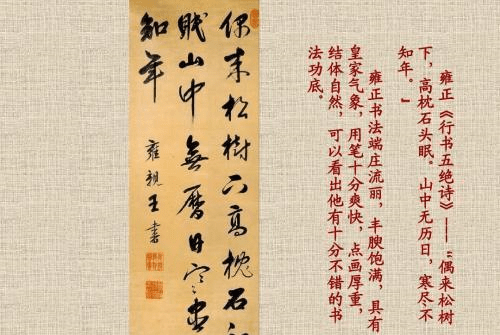 雍正《行书五绝诗》——“偶来松树
下，高枕石头眠。山中无历日，寒尽不
知年。”
雍正书法端庄流丽，丰腴饱满，具有
皇家气象，用笔十分爽快，点画厚重，
结体自然，可以看出他有十分不错的书
法功底。
偶来松樹下高枕石
眠山中無曆日寒盡
知年
雍親王書